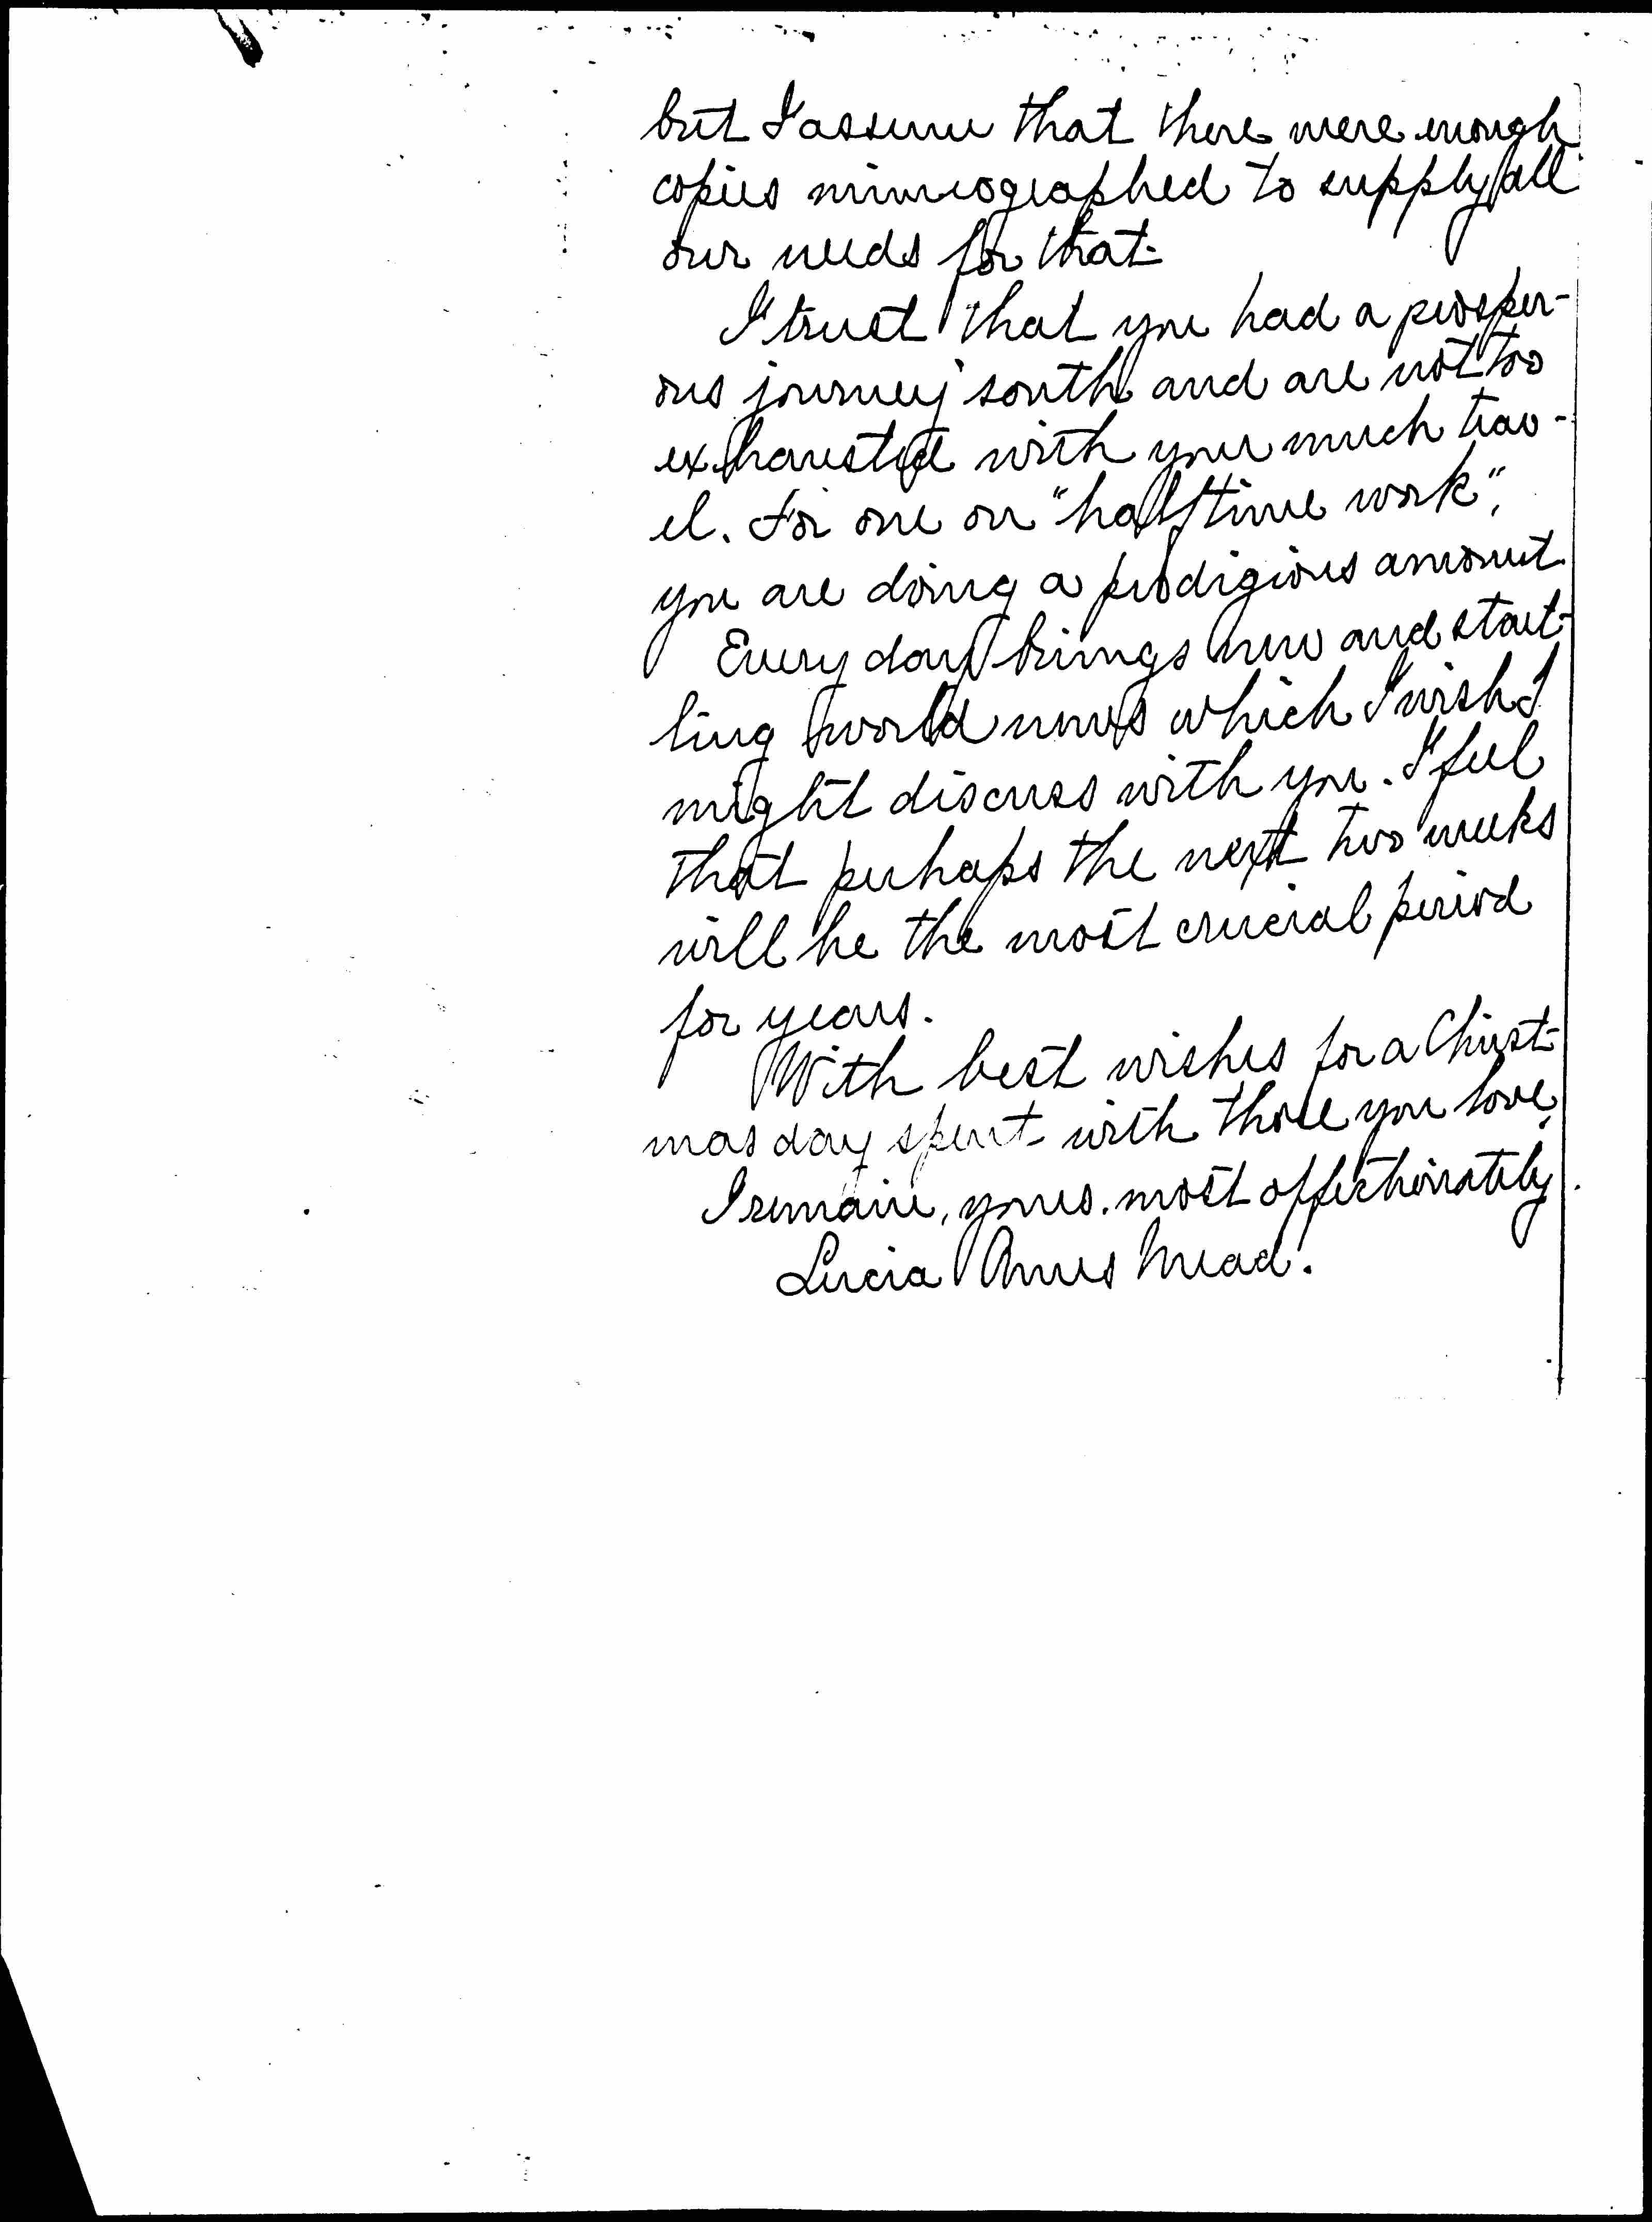 but I assume that there were enough
copies mimeographed to supply all
our needs for that.
I trust that you had a prosper-
ous journey south and are not too
exhausted with your much trav-
el. For one on "half time work",
you are doing a prodigious amount.
Every day brings new and start-
ling world news which I wish I
might discuss with you. I feel
that perhaps the next two weeks
will be the most crucial period
for years.
With best wishes for a Christ-
mas day spent with those you love,
I remain, yours most affectionately
Lucia Ames Mead.